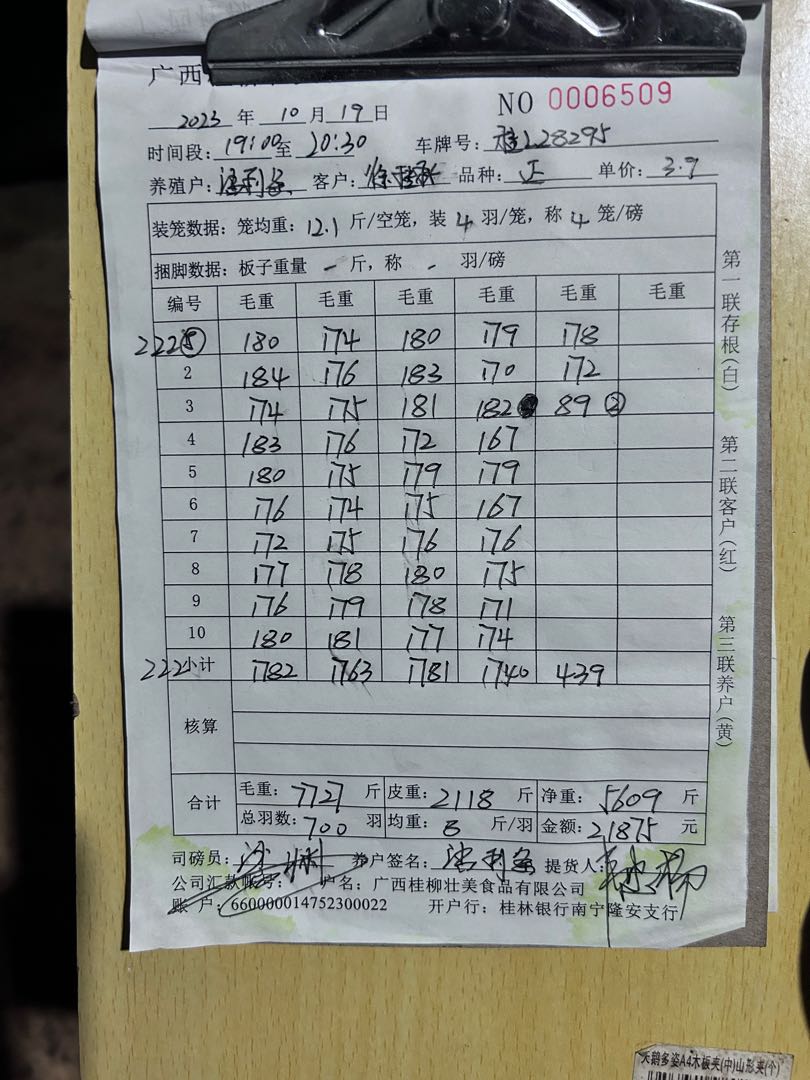 广西
NO 0006509
2023 年 10 月 19 日
时间段: 19:00 至 20:30 车牌号: 桂L28295
养殖户: 客户: 品种: 正 单价: 3.9
装笼数据: 笼均重: 12.1 斤/空笼, 装 4 羽/笼, 称 4 笼/磅
捆脚数据: 板子重量 - 斤, 称 - 羽/磅
编号 毛重 毛重 毛重 毛重 毛重 毛重
222⑤ 180 174 180 179 178
2 184 176 183 170 172
3 174 175 181 182 89 ②
4 183 176 172 167
5 180 175 179 179
6 176 174 175 167
7 172 175 176 176
8 177 178 180 175
9 176 179 178 171
10 180 181 177 174
222 小计 1782 1763 1781 1740 439
核算
合计 毛重: 7727 斤 皮重: 2118 斤 净重: 5609 斤
总羽数: 700 羽 均重: 8 斤/羽 金额: 21875 元
司磅员: 养户签名: 提货人:
公司汇款账号: 户名: 广西桂柳壮美食品有限公司
账 户: 660000014752300022 开户行: 桂林银行南宁隆安支行
第一联存根(白)
第二联客户(红)
第三联养户(黄)
天鹅多姿A4木板夹(中)山形夹(个)